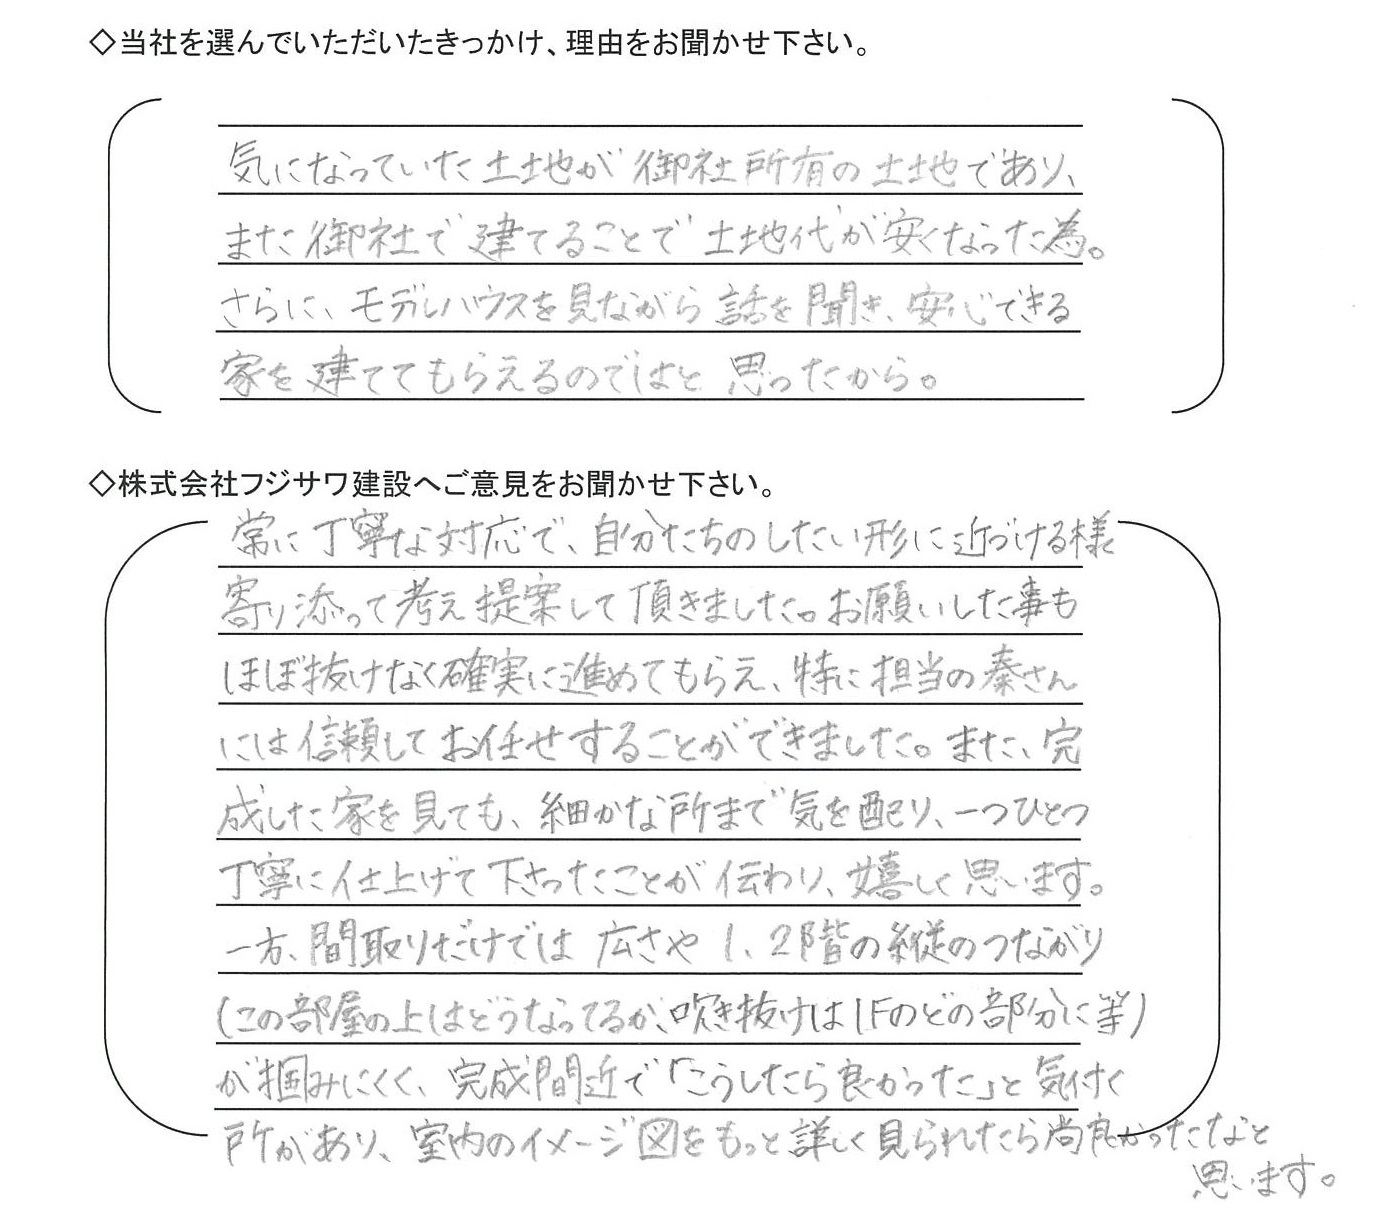 ◇当社を選んでいただいたきっかけ、理由をお聞かせ下さい。
気になっていた土地が御社所有の土地であり、
また御社で建てることで土地代が安くなった為。
さらに、モデルハウスを見ながら話を聞き、安心できる
家を建ててもらえるのではと思ったから。
◇株式会社フジサワ建設へご意見をお聞かせ下さい。
常に丁寧な対応で、自分たちのしたい形に近づける様
寄り添って考え提案して頂きました。お願いした事も
ほぼ抜けなく確実に進めてもらえ、特に担当の秦さん
には信頼してお任せすることができました。また、完
成した家を見ても、細かな所まで気を配り、一つひとつ
丁寧に仕上げて下さったことが伝わり、嬉しく思います。
一方、間取りだけでは広さや1、2階の縦のつながり
(この部屋の上はどうなってるか、吹き抜けは1Fのどの部分に等)
が掴みにくく、完成間近で「こうしたら良かった」と気付く
所があり、室内のイメージ図をもっと詳しく見られたら尚良かったなと
思います。